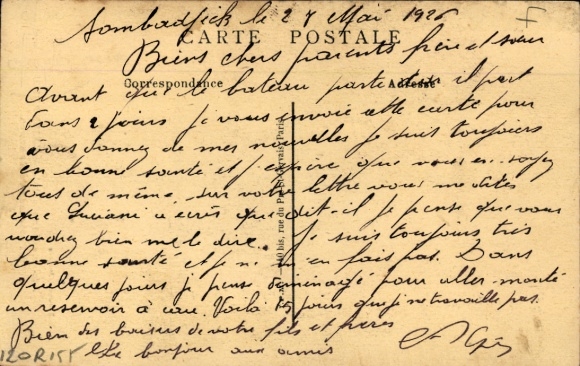 le 27 Mai 1926
F
CARTE POSTALE
Biens chers parents frère et sœur
Correspondance
Adresse
Avant que le bateau parte il part
dans 2 jours je vous envoie cette carte pour
vous donner de mes nouvelles je suis toujours
en bonne santé et j'espère que vous en soyez
tous de même. sur votre lettre vous me dites
que Luciani a écris que dit-il je pense que vous
voudrez bien me le dire. Je suis toujours très
bonne santé et je ne m'en fais pas. Dans
quelques jours je pense déménagé pour aller monté
un reservoir à eau. Voilà 15 jours que je ne travaille pas.
Bien des baisers de votre fils et frères
Le bonjour aux amis
120R155
bis, rue du Paris